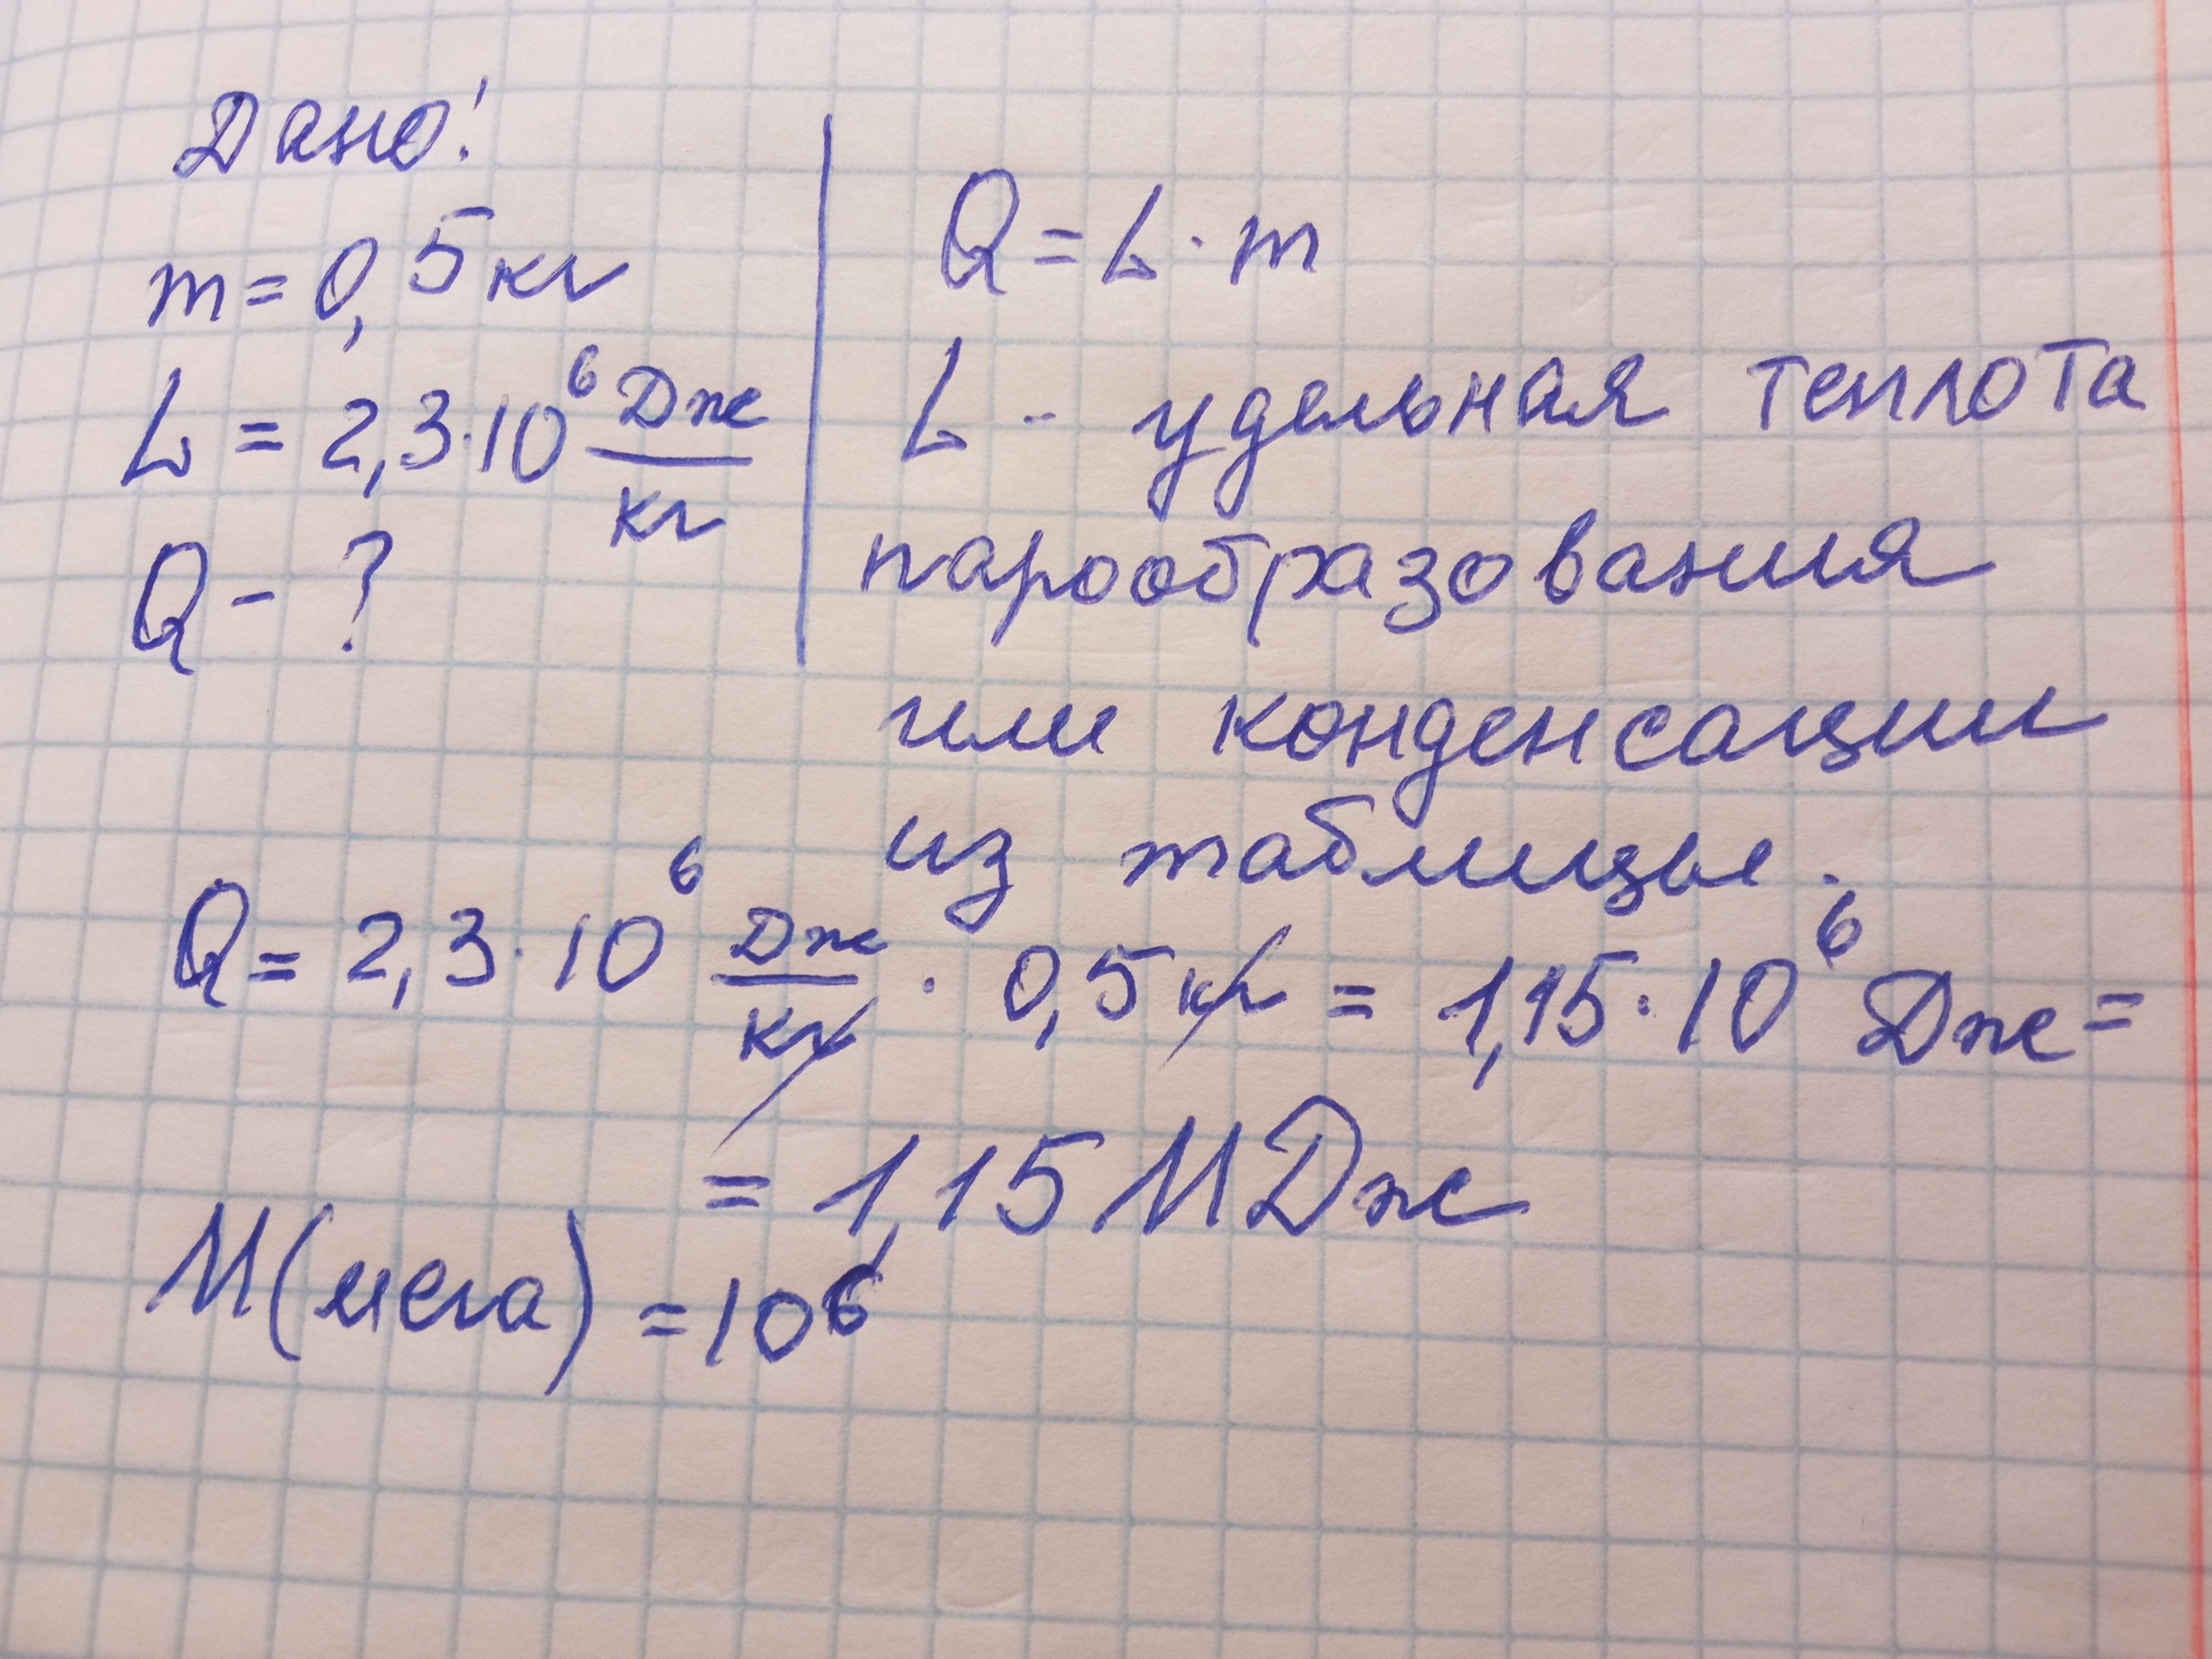 Дано!
m = 0,5 кг
L = 2,3·10⁶ Дж/кг
Q - ?
Q = L · m
L - удельная теплота
парообразования
или конденсации
из таблицы.
Q = 2,3·10⁶ Дж/кг · 0,5 кг = 1,15·10⁶ Дж =
= 1,15 МДж
М(мега) = 10⁶